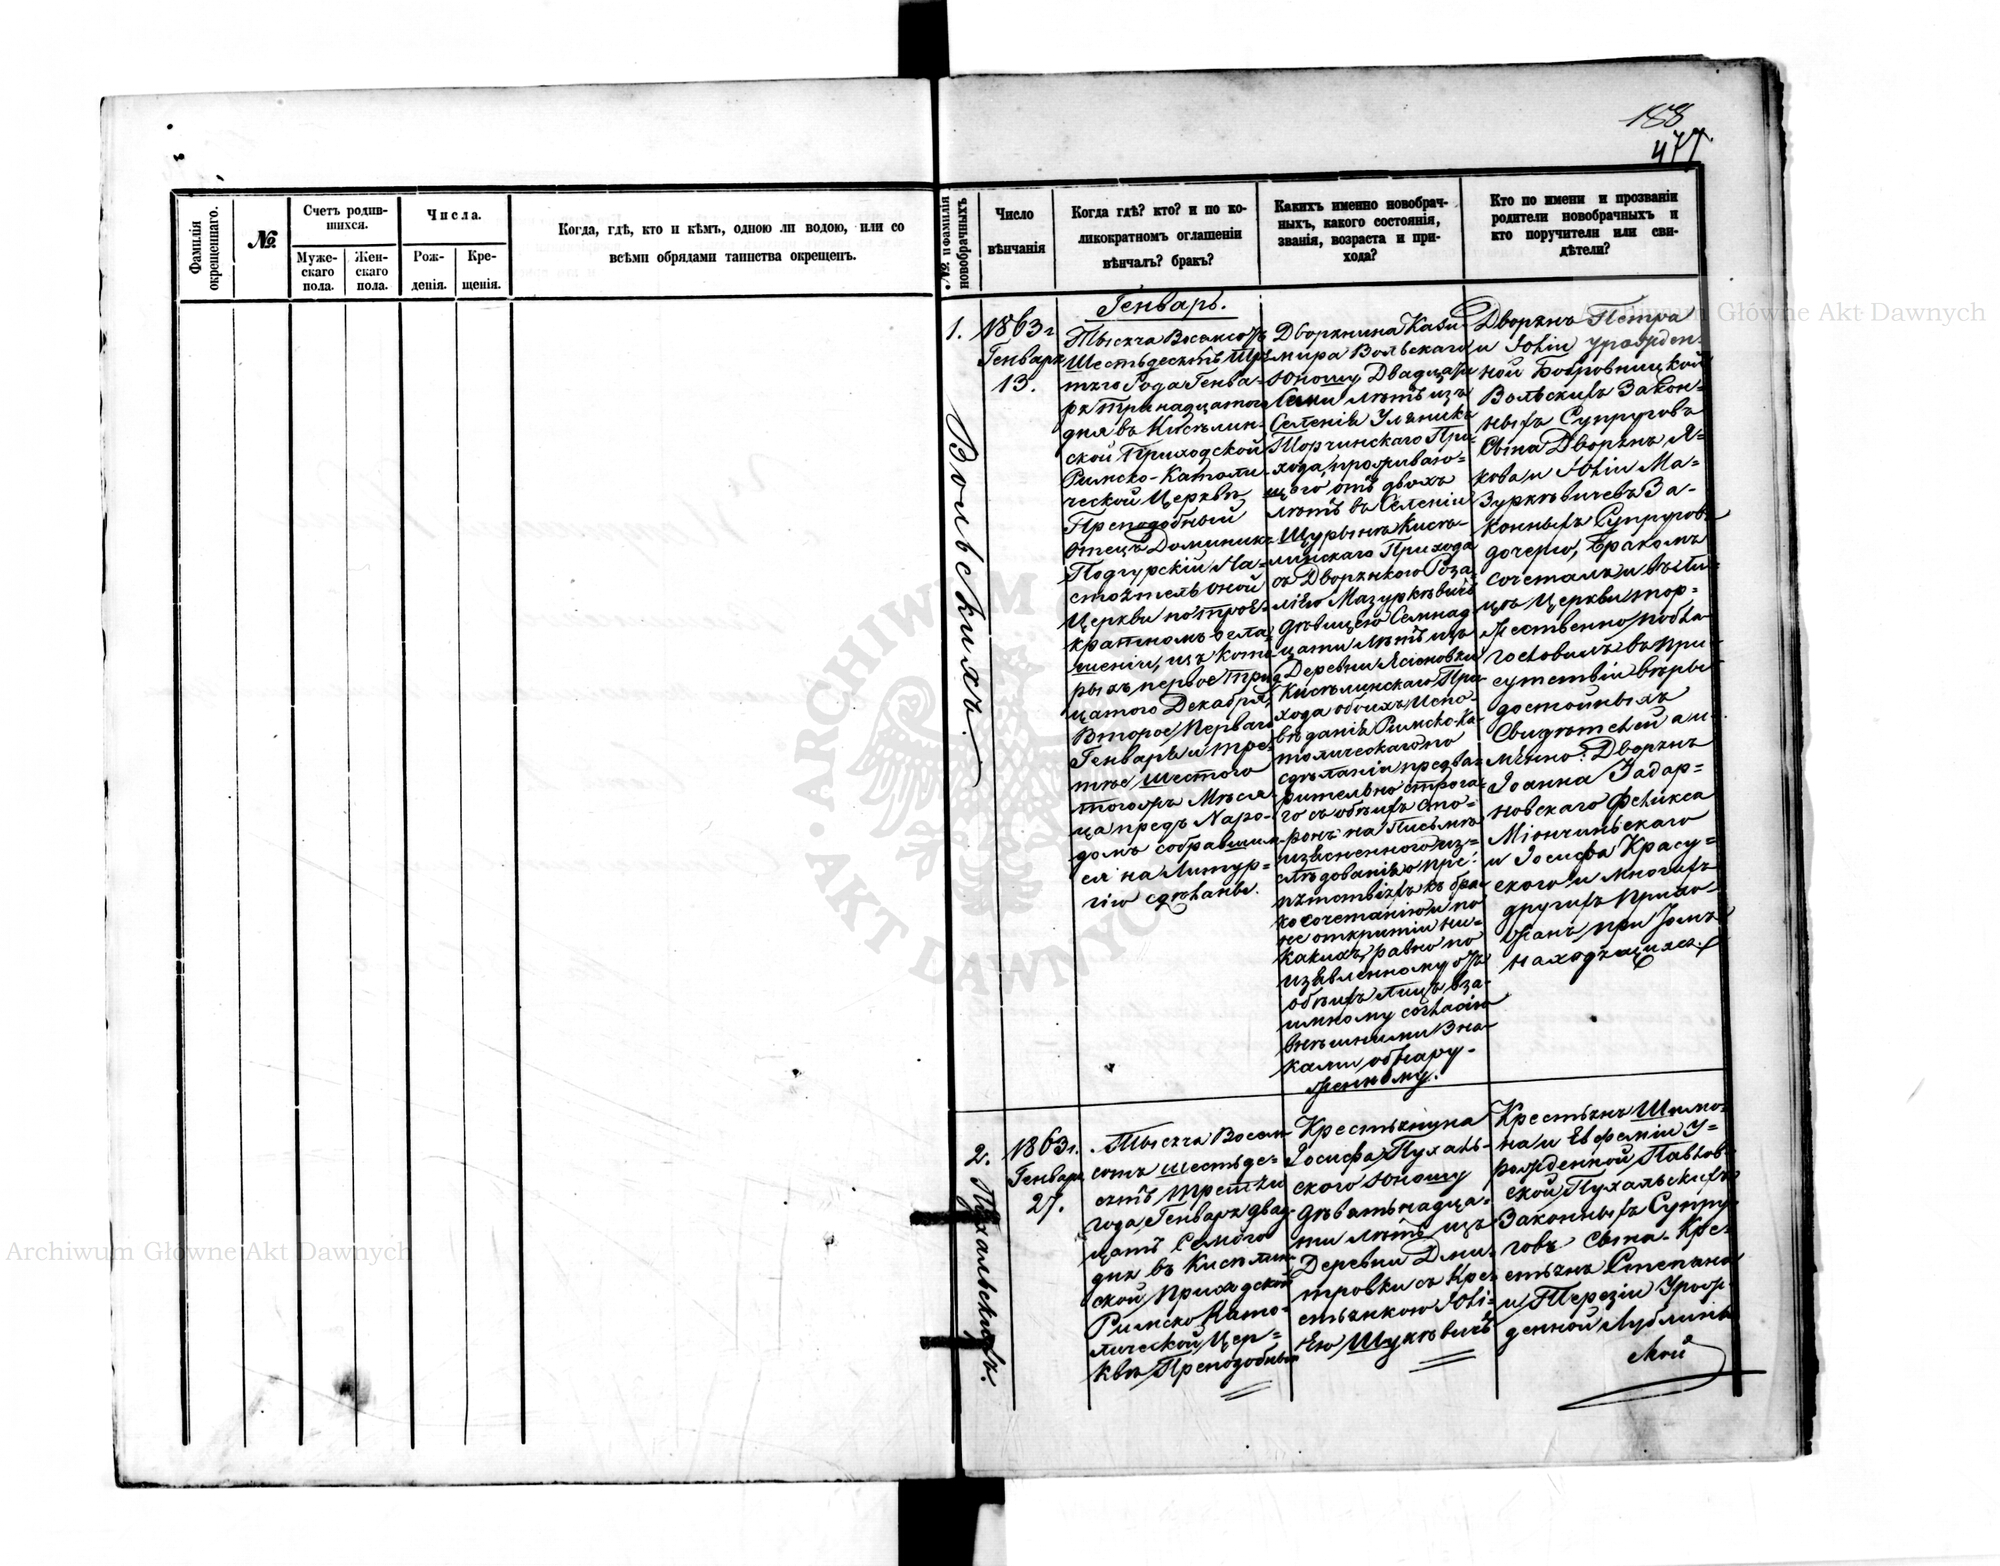 188
477
Фамилія окрещеннаго.
№
Счетъ родив-
шихся.
Муже-
скаго
пола.
Жен-
скаго
пола.
Числа.
Рож-
денія.
Кре-
щенія.
Когда, гдѣ, кто и кѣмъ, одною ли водою, или со
всѣми обрядами таинства окрещен.
№. и Фамилія
новобрачныхъ
Число
вѣнчанія
Когда гдѣ? кто? и по ко-
ликократномъ оглашеніи
вѣнчалъ? бракъ?
Какихъ именно новобрач-
ныхъ, какого состоянія,
званія, возраста и при-
хода?
Кто по имени и прозваніи
родители новобрачныхъ и
кто поручители или сви-
дѣтели?
1.
Вольскихъ.
1863 г
Генваря
13.
Генварь.
Тысяча Восемсотъ
Шестьдесятъ Тре-
тяго Года Генва-
ря тринадцатого
дня въ Киселин-
ской Приходской
Римско-Католи-
ческой Церквѣ
Преподобный
Отецъ Доминикъ
Подгурскій На-
стоятель оной
Церкви по трое-
кратномъ огла-
шеніи, изъ кото-
рыхъ первое трид-
цатого Декабря,
Второе Перваго
Генваря и тре-
тѣе шестого
тогожъ Мѣся-
ца предъ Наро-
домъ собравшим-
ся на Литур-
гію сдѣланы.
Дворянина Кази-
мира Вольскаго
Юношу Двадцати
Семи лѣтъ изъ
Селенія Уляникъ
Шорчинскаго При-
хода, проживаю-
щого отъ двохъ
лѣтъ въ Селеніи
Щурынѣ Кисѣ-
линскаго Прихода
съ Дворянкою Роза-
ліею Мазуркѣвичъ
дѣвицею Семнад-
цати лѣтъ изъ
Деревни Ясіновки
Кисѣлинскаго При-
хода обоихъ Испо-
вѣданія Римско-Ка-
толическаго по
сдѣланіи предва-
рительно строга-
го съ обѣихъ сто-
ронъ на Письмѣ
изясненного из-
слѣдованія о пре-
пятствіяхъ къ бра-
косочетанію и по
не открытіи ни-
какихъ, равно по
изявленному отъ
обѣихъ лицъ вза-
имному согласію
внѣшними Зна-
ками обнару-
женному.
Дворянъ Петра
и Юліи урожден-
ной Бобровницкой
Вольскихъ Закон-
ныхъ Супруговъ
Сына Дворянъ Я-
кова и Юліи Ма-
зуркѣвичевъ За-
конныхъ Супруговъ
дочерію, Бракомъ
сочеталъ и въ Ли-
цѣ Церкви тор-
жественно побла-
гословилъ въ при-
сутствіи вѣры
достойныхъ
Свидѣтелей а и-
мѣнно: Дворянъ
Іоанна Задар-
новскаго Феликса
Міончиньскаго
и Іосифа Красу-
ского и многихъ
другихъ прихо-
жанъ при Томъ
находящихся.
2.
Пухальскихъ.
1863 г.
Генваря
27.
Тысяча Восем-
сотъ шестьде-
сятъ третьи
года Генваря двад-
цать Семого
дня въ Киселин-
ской Приходской
Римско Като-
лической Цер-
квѣ Преподобный
Крестьянина
Іосифа Пухаль-
ского Юношу
дѣвятьнадца-
ти лѣтъ изъ
Деревни Дми-
тровки съ Кре-
стьянкою Юлі-
ею Шукѣвичъ
Крестьянъ Шимо-
на и Евфеміи у-
рожденной Павлов-
ской Пухальскихъ
Законныхъ Супру-
говъ сына. Кре-
стьянъ Степана
и Терезіи урож-
денной Лублинь-
ской
Archiwum Główne Akt Dawnych
Archiwum Główne Akt Dawnych
ARCHIWUM GŁÓWNE AKT DAWNYCH